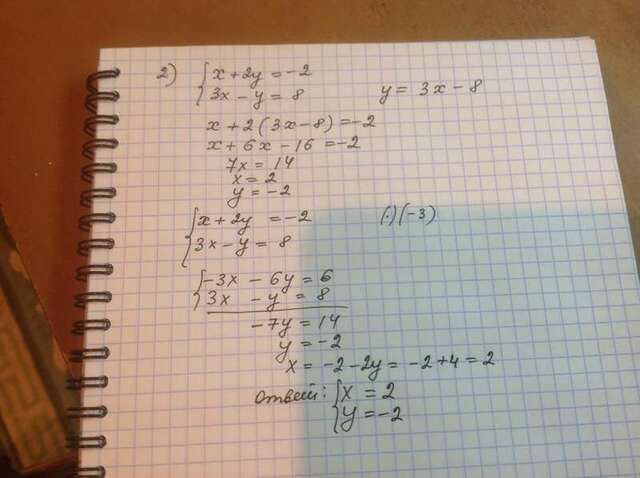 2) { x + 2y = -2
3x - y = 8 y = 3x - 8
x + 2(3x - 8) = -2
x + 6x - 16 = -2
7x = 14
x = 2
y = -2
{ x + 2y = -2 (·)(-3)
3x - y = 8
{ -3x - 6y = 6
3x - y = 8
-7y = 14
y = -2
x = -2 - 2y = -2 + 4 = 2
Ответ: { x = 2
y = -2